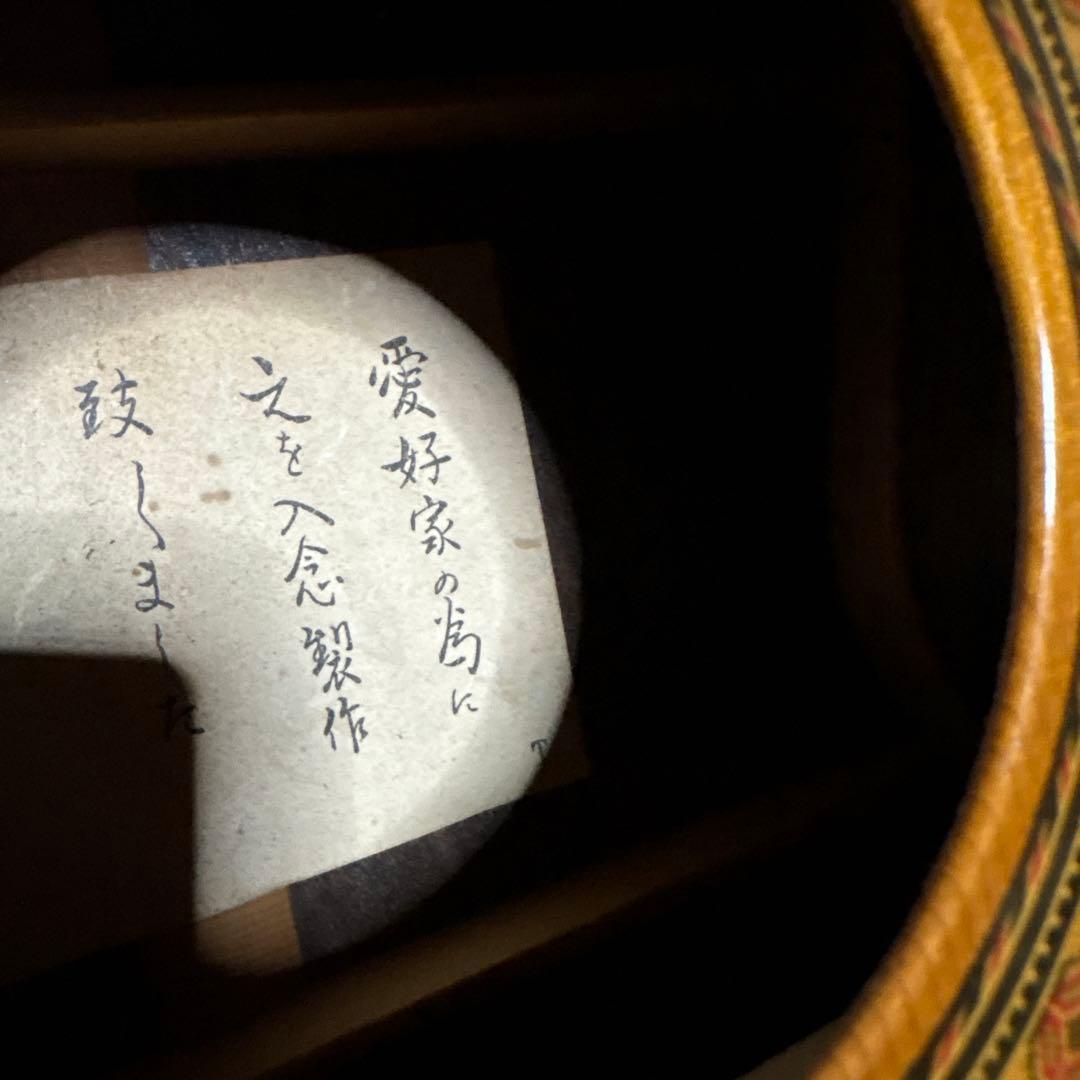 愛好家の為に
之を入念製作
致しました